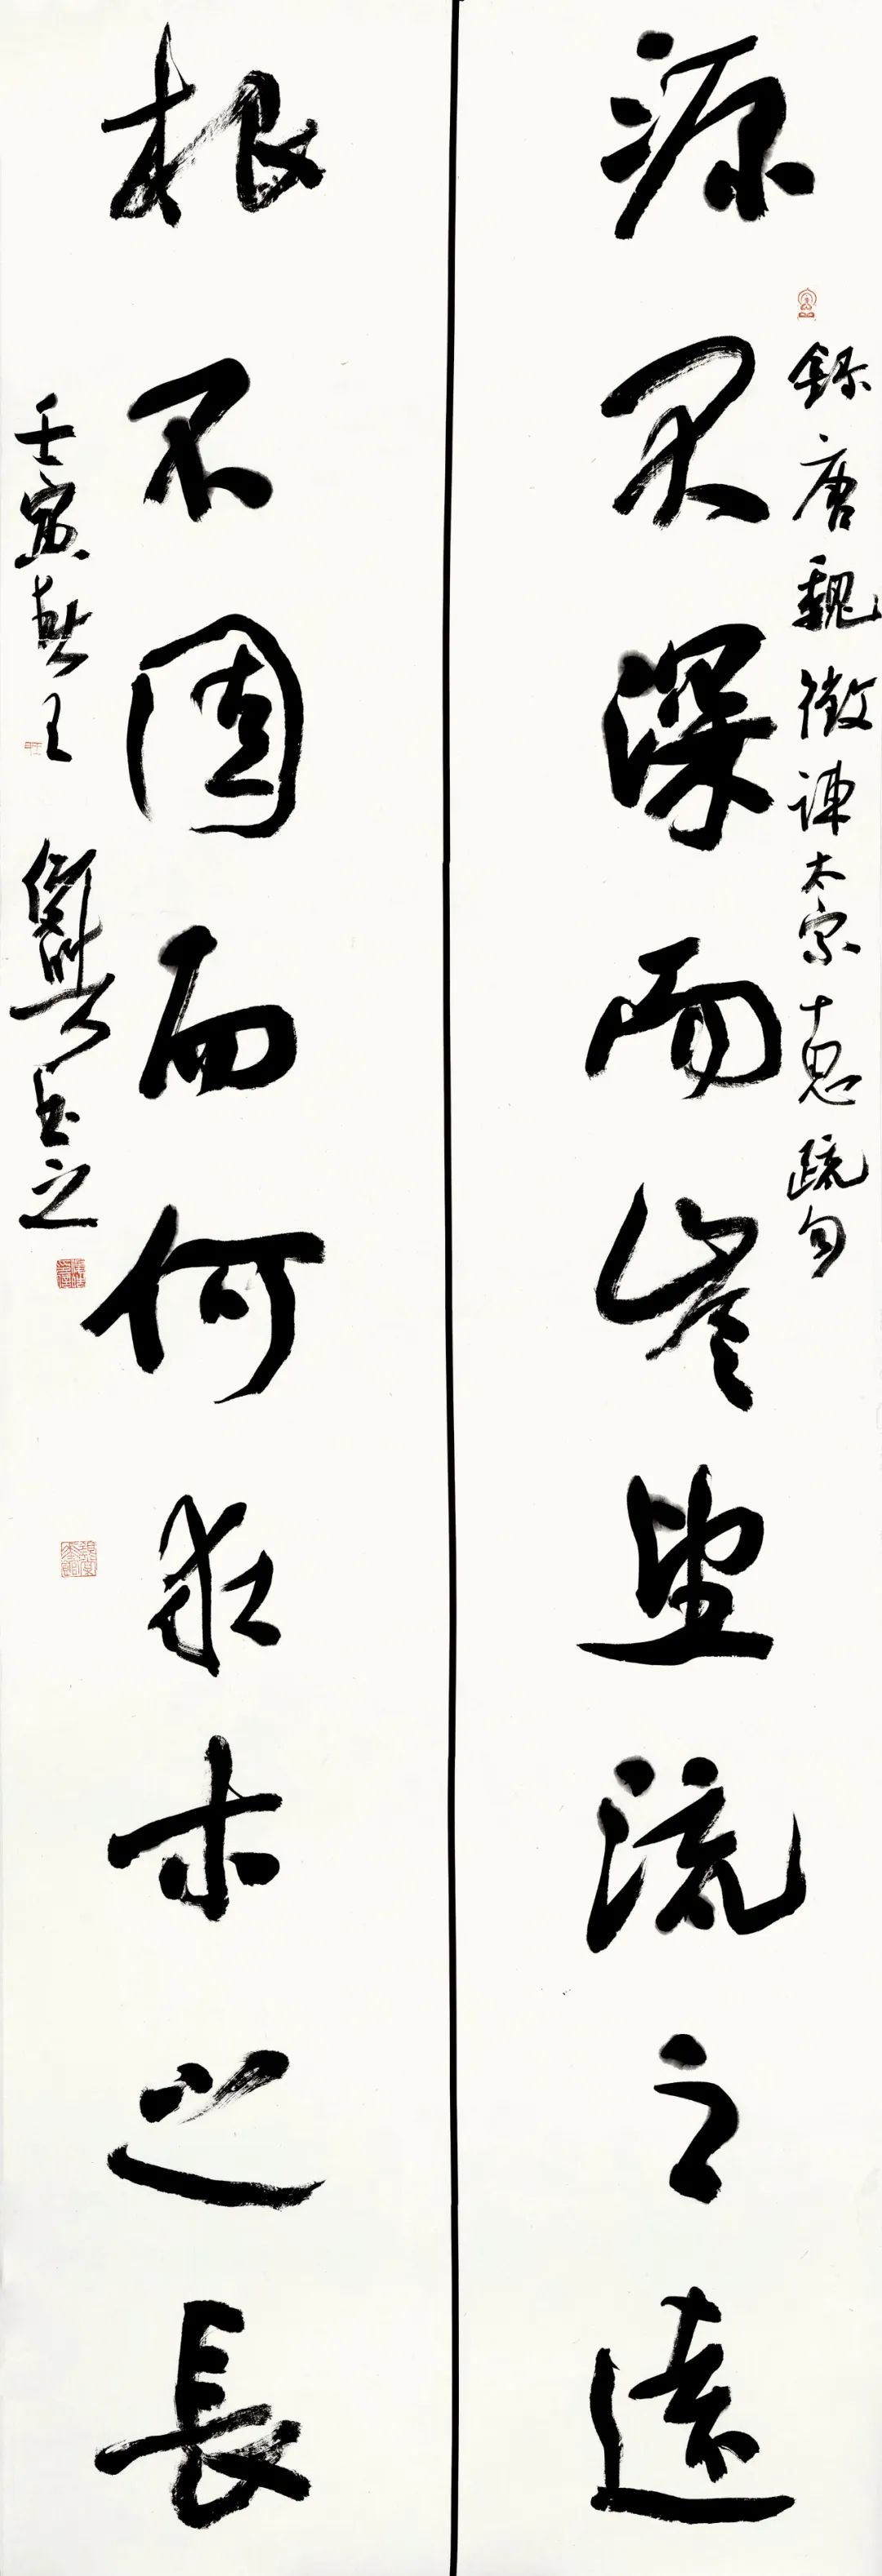 錄唐魏徵諫太宗十思疏句
源不深而豈望流之遠
根不固而何求木之長
壬寅春王書之